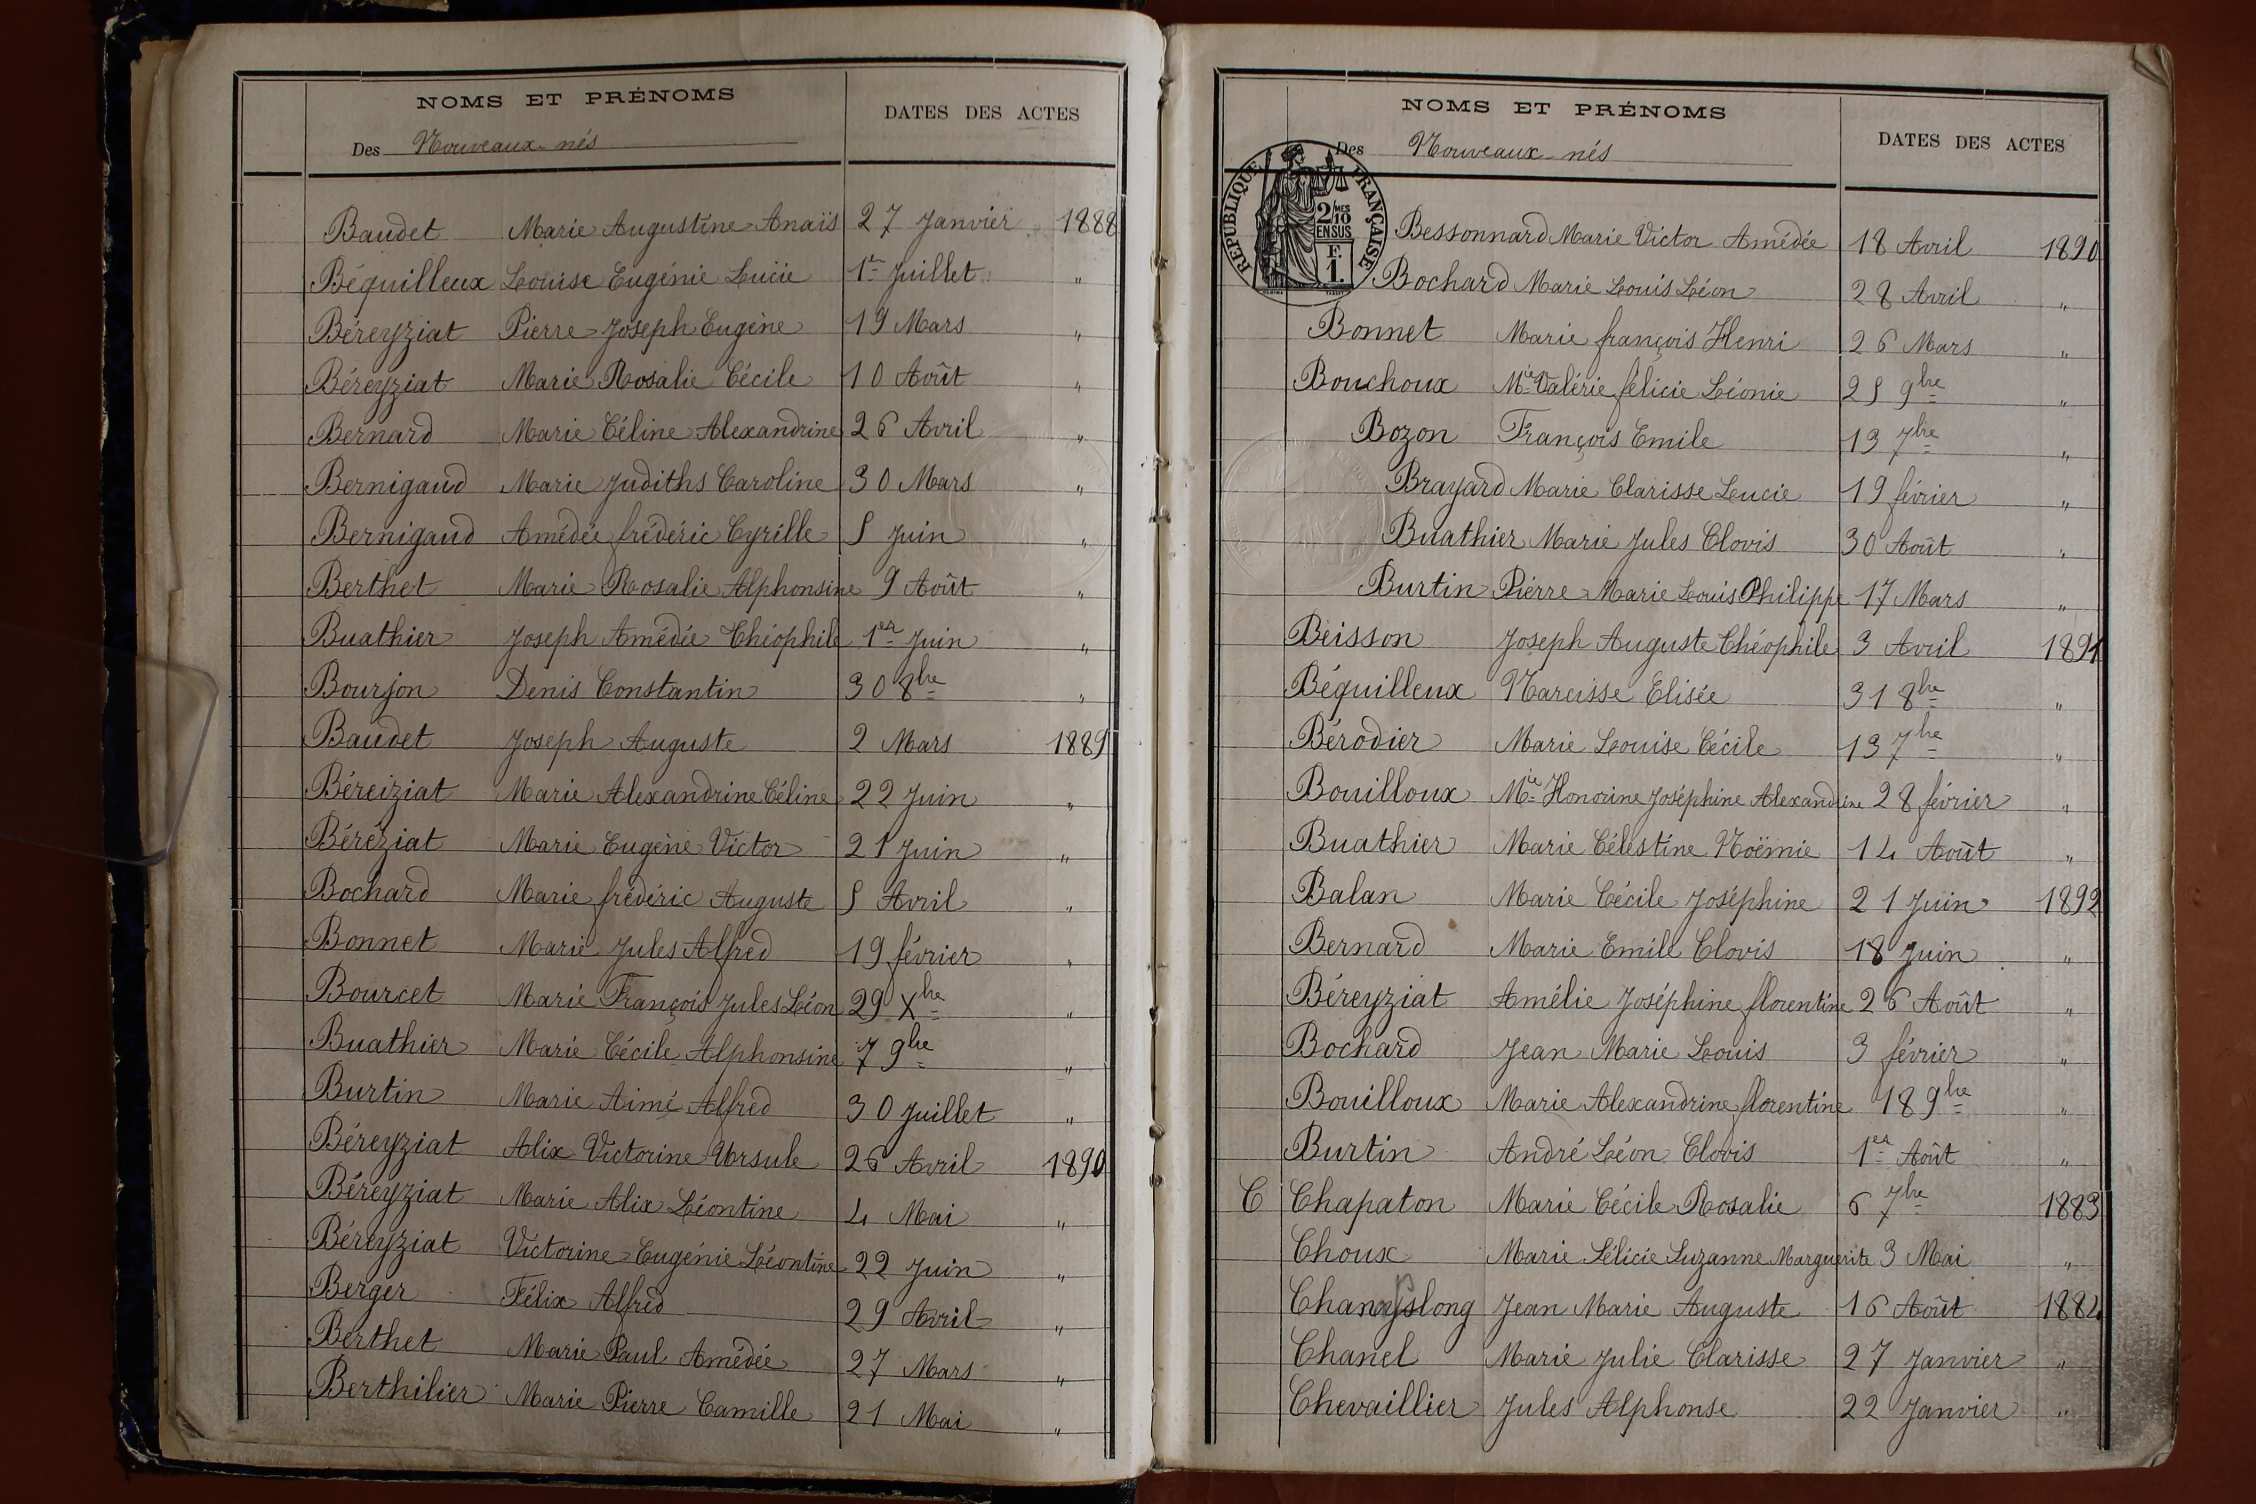 NOMS ET PRÉNOMS
DATES DES ACTES
Des Nouveaux-nés
Baudet Marie Augustine Anaïs 27 Janvier 1888
Béquilleux Louise Eugénie Lucie 1er Juillet "
Béreyziat Pierre Joseph Eugène 19 Mars "
Béreyziat Marie Rosalie Cécile 10 Août "
Bernard Marie Céline Alexandrine 26 Avril "
Bernigaud Marie Judiths Caroline 30 Mars "
Bernigaud Amédée frédéric Cyrille 5 Juin "
Berthet Marie Rosalie Alphonsine 9 Août "
Buathier Joseph Amédée Théophile 1er Juin "
Bourjon Denis Constantin 30 8bre "
Baudet Joseph Auguste 2 Mars 1889
Béreiziat Marie Alexandrine Céline 22 Juin "
Béréziat Marie Eugène Victor 21 Juin "
Bochard Marie frédéric Auguste 5 Avril "
Bonnet Marie Jules Alfred 19 février "
Bourcet Marie François Jules Léon 29 Xbre "
Buathier Marie Cécile Alphonsine 7 9bre "
Burtin Marie Aimé Alfred 30 Juillet "
Béreyziat Alix Victorine Ursule 26 Avril 1890
Béreyziat Marie Alix Léontine 4 Mai "
Béreyziat Victorine Eugénie Léontine 22 Juin "
Berger Félix Alfred 29 Avril "
Berthet Marie Paul Amédée 27 Mars "
Berthilier Marie Pierre Camille 21 Mai "
NOMS ET PRÉNOMS
DATES DES ACTES
Des Nouveaux-nés
RÉPUBLIQUE FRANÇAISE
2/10MES
EN SUS
F.
1.
Bessonnard Marie Victor Amédée 18 Avril 1890
Bochard Marie Louis Léon 28 Avril "
Bonnet Marie françois Henri 26 Mars "
Bouchoux Mie Valérie félicie Léonie 25 9bre "
Bozon François Emile 13 7bre "
Brayard Marie Clarisse Lucie 19 février "
Buathier Marie Jules Clovis 30 Août "
Burtin Pierre Marie Louis Philippe 17 Mars "
Beisson Joseph Auguste Théophile 3 Avril 1891
Béquilleux Narcisse Elisée 31 8bre "
Bérodier Marie Louise Cécile 13 7bre "
Bouilloux Mie Honorine Joséphine Alexandrine 28 février "
Buathier Marie Célestine Noëmie 14 Août "
Balan Marie Cécile Joséphine 21 Juin 1892
Bernard Marie Emile Clovis 18 Juin "
Béreyziat Amélie Joséphine florentine 26 Août "
Bochard Jean Marie Louis 3 février "
Bouilloux Marie Alexandrine florentine 18 9bre "
Burtin André Léon Clovis 1er Août "
C Chapaton Marie Cécile Rosalie 6 7bre 1883
Choux Marie Félicie Suzanne Marguerite 3 Mai "
Jean Marie Auguste 16 Août 1884
Chanel Marie Julie Clarisse 27 Janvier "
Chevaillier Jules Alphonse 22 Janvier "